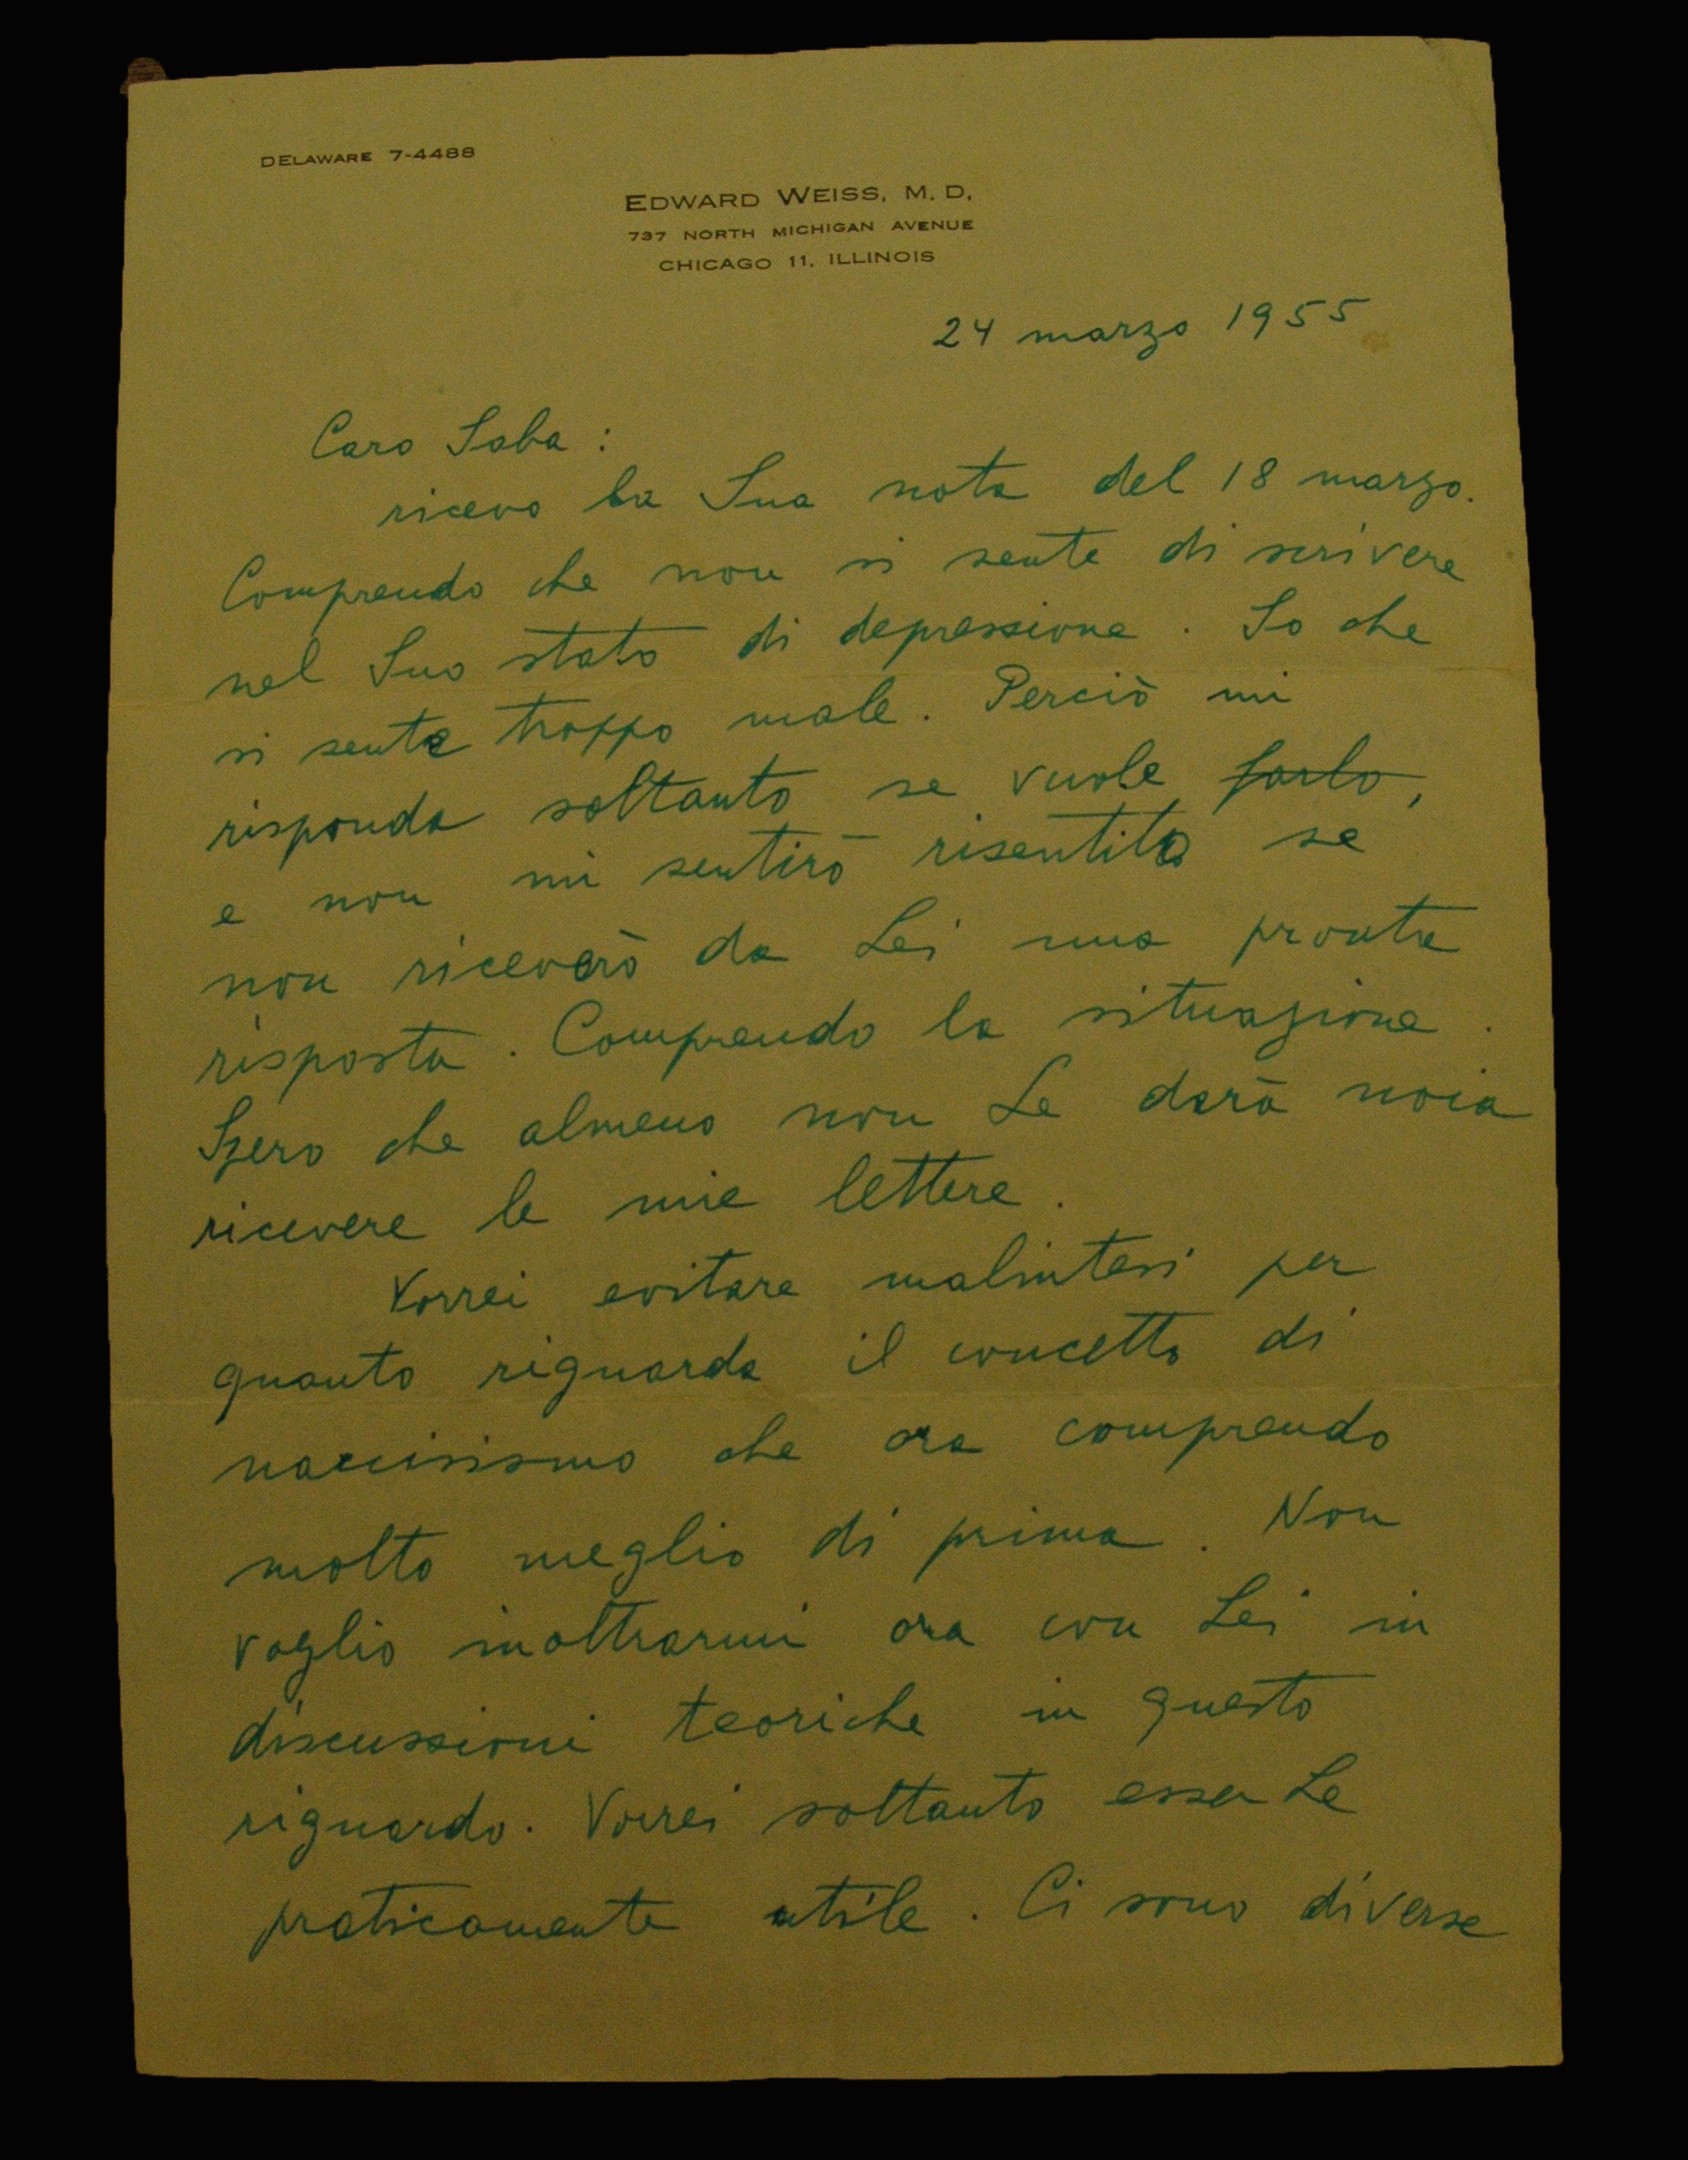 DELAWARE 7-4488
EDWARD WEISS, M. D.
737 NORTH MICHIGAN AVENUE
CHICAGO 11, ILLINOIS
24 marzo 1955
Caro Saba :
ricevo la Sua nota del 18 marzo.
Comprendo che non si sente di scrivere
nel Suo stato di depressione. So che
si sente troppo male. Perciò mi
risponda soltanto se vuole farlo,
e non mi sentirò risentito se
non riceverò da Lei una pronta
risposta. Comprendo la situazione.
Spero che almeno non Le darà noia
ricevere le mie lettere.
Vorrei evitare malintesi per
quanto riguarda il concetto di
narcisismo che ora comprendo
molto meglio di prima. Non
voglio inoltrarmi ora con Lei in
discussioni teoriche in questo
riguardo. Vorrei soltanto esserLe
praticamente utile. Ci sono diverse